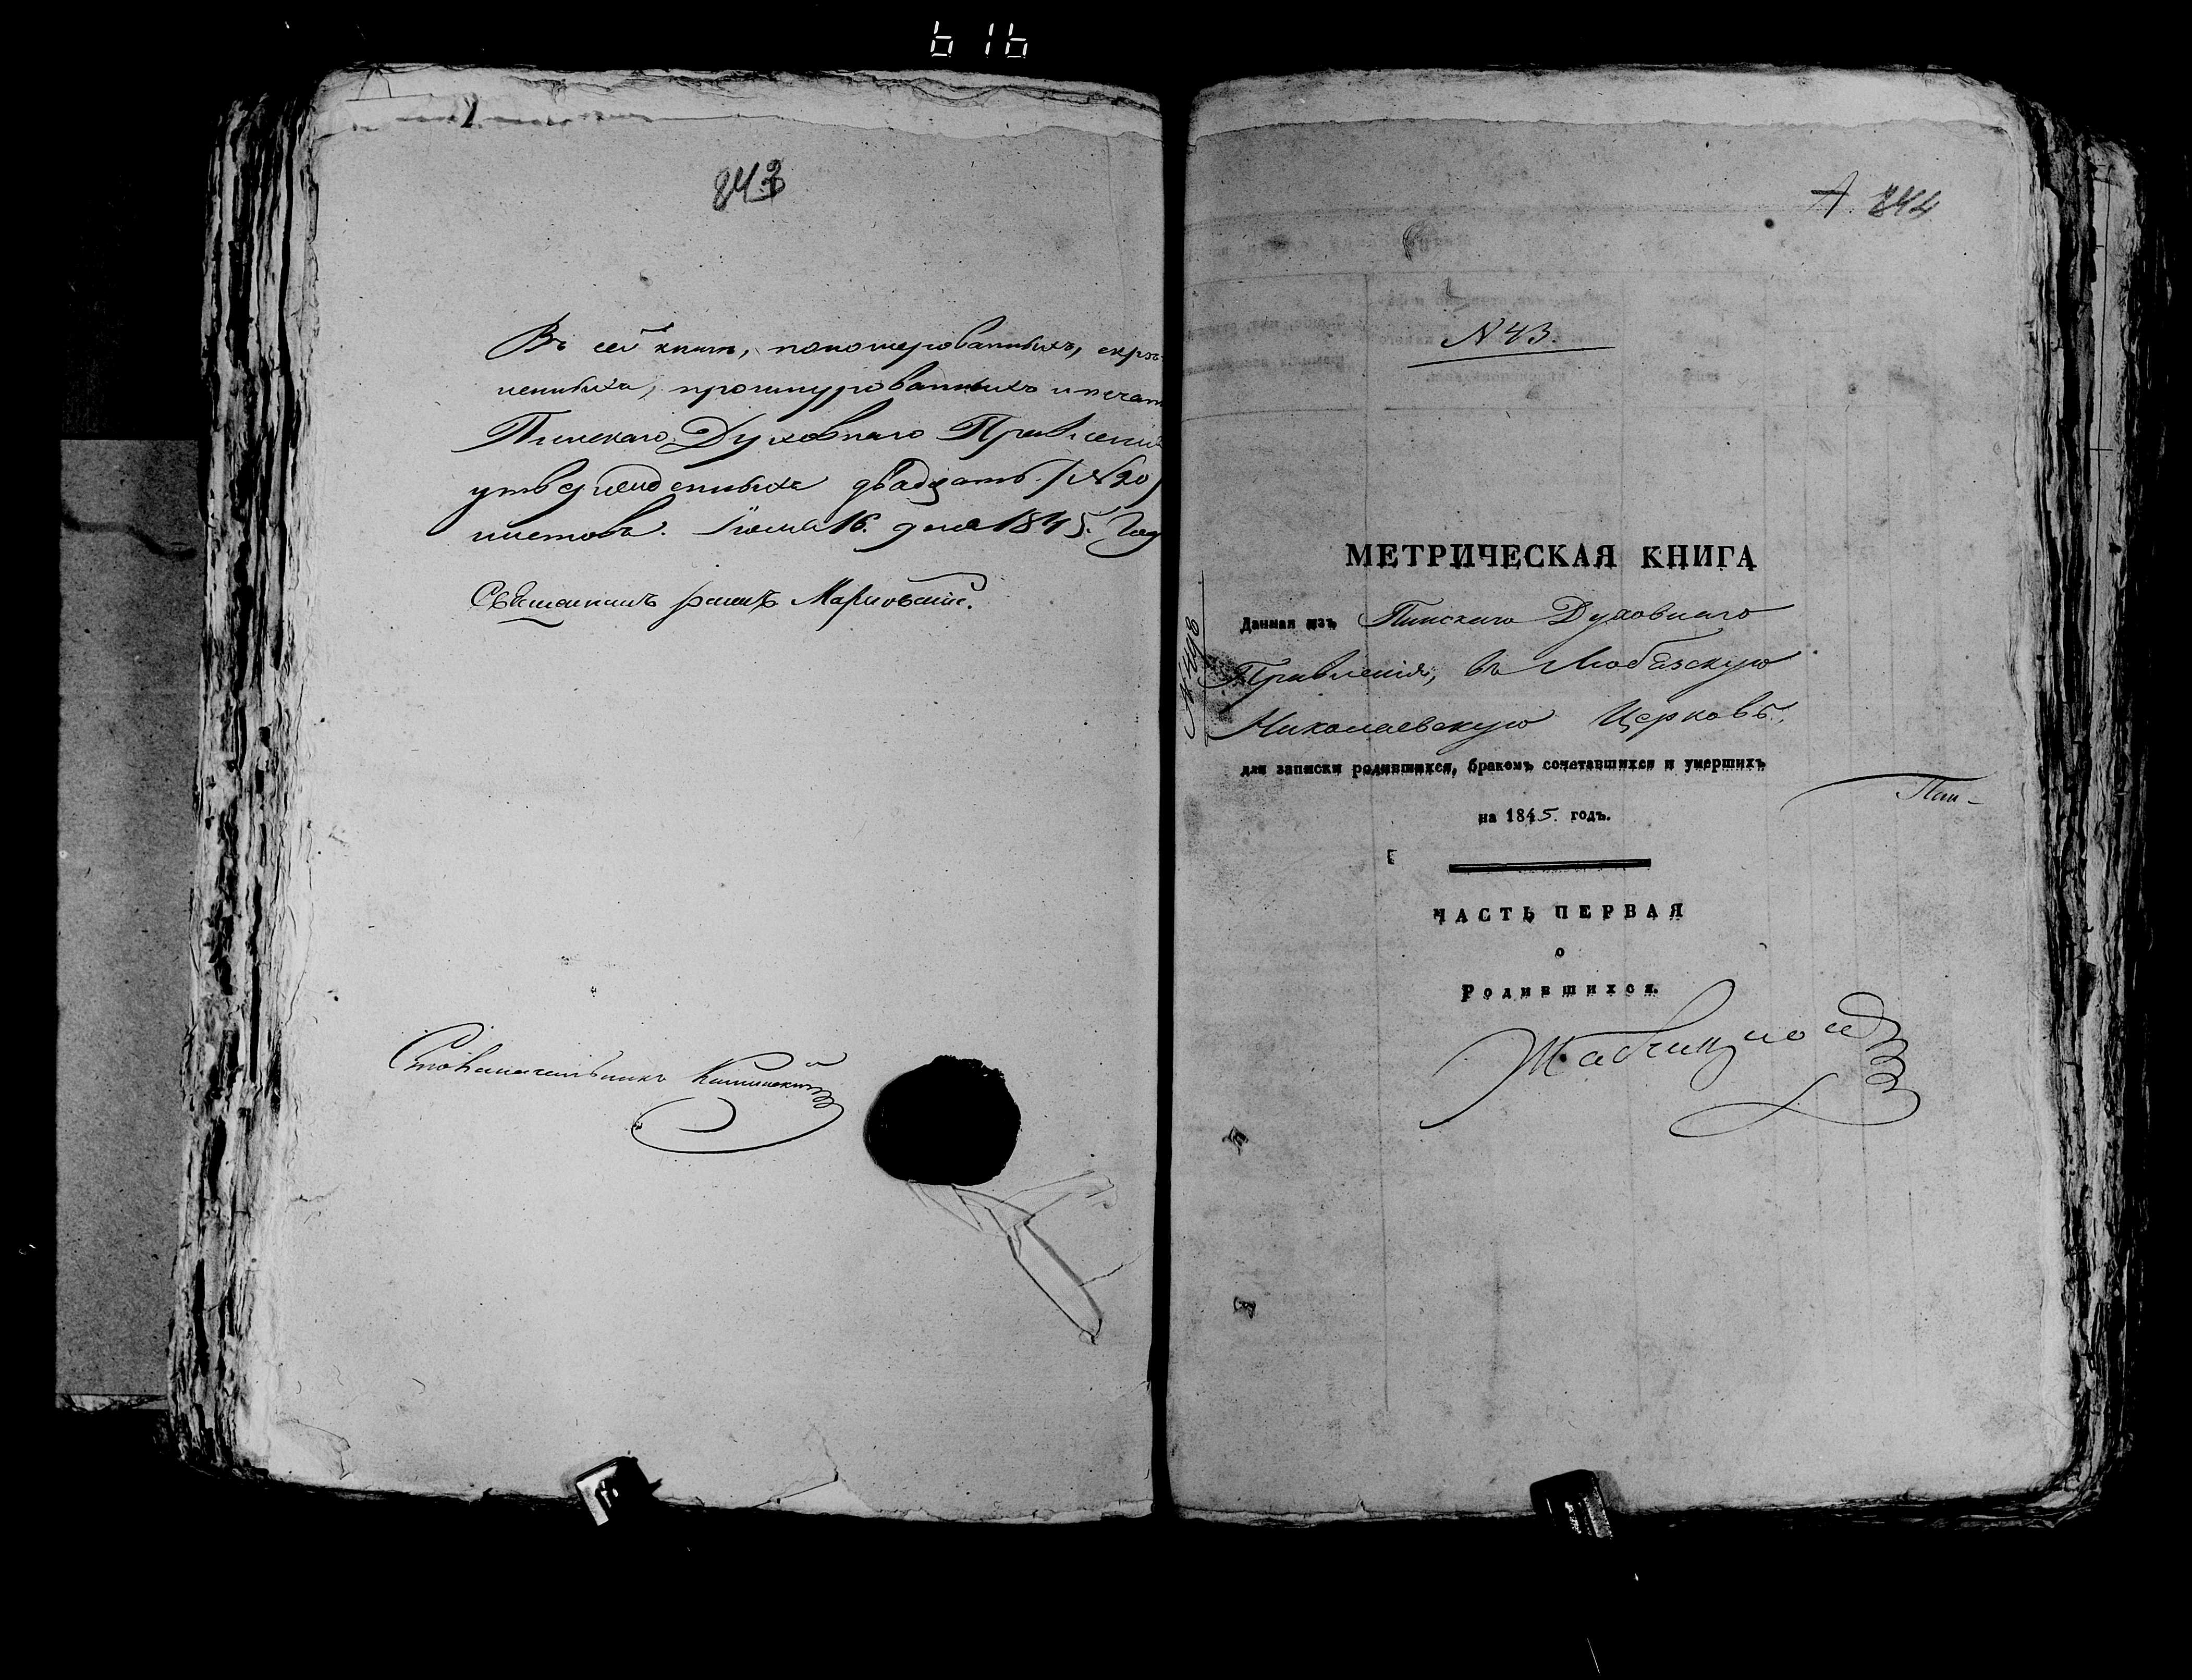 616
843
Въ сей книгѣ, пономерованныхъ, скрѣ-
пленныхъ, прошнурованныхъ и печат
Пинскаго Духовнаго Правленія
утвержденныхъ двадцать (№20)
листовъ. 16. дня 1845. Год
Священникъ
Столоначальникъ
А. 844
N 43.
МЕТРИЧЕСКАЯ КНИГА
Данная изъ Пинскаго Духовнаго
Правленія, въ Любязскую
Николаевскую Церковь.
для записки родившихся, бракомъ сочетавшихся и умершихъ
на 1845. годъ.
ЧАСТЬ ПЕРВАЯ
о
Родившихся.